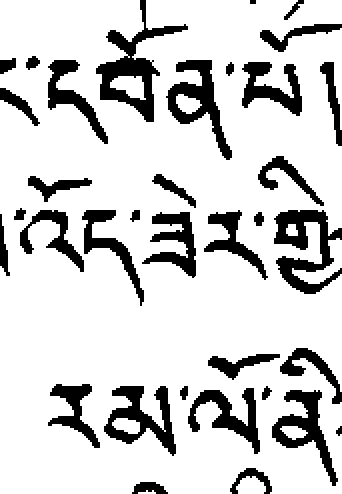 ར་དབོན་པོ།
འོད་ཟེར་གྱི
རམ་ལོ་ནི